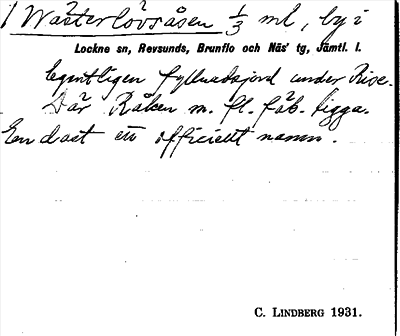 1 Wästerlövsåsen 1/3 ml, by i
Lockne sn, Revsunds, Brunflo och Näs' tg, Jämtl. l.
Egentligen fyllnadsjord under Rise.
Där Råken m. fl. fäb. ligga.
Endast ett officiellt namn.
C. LINDBERG 1931.